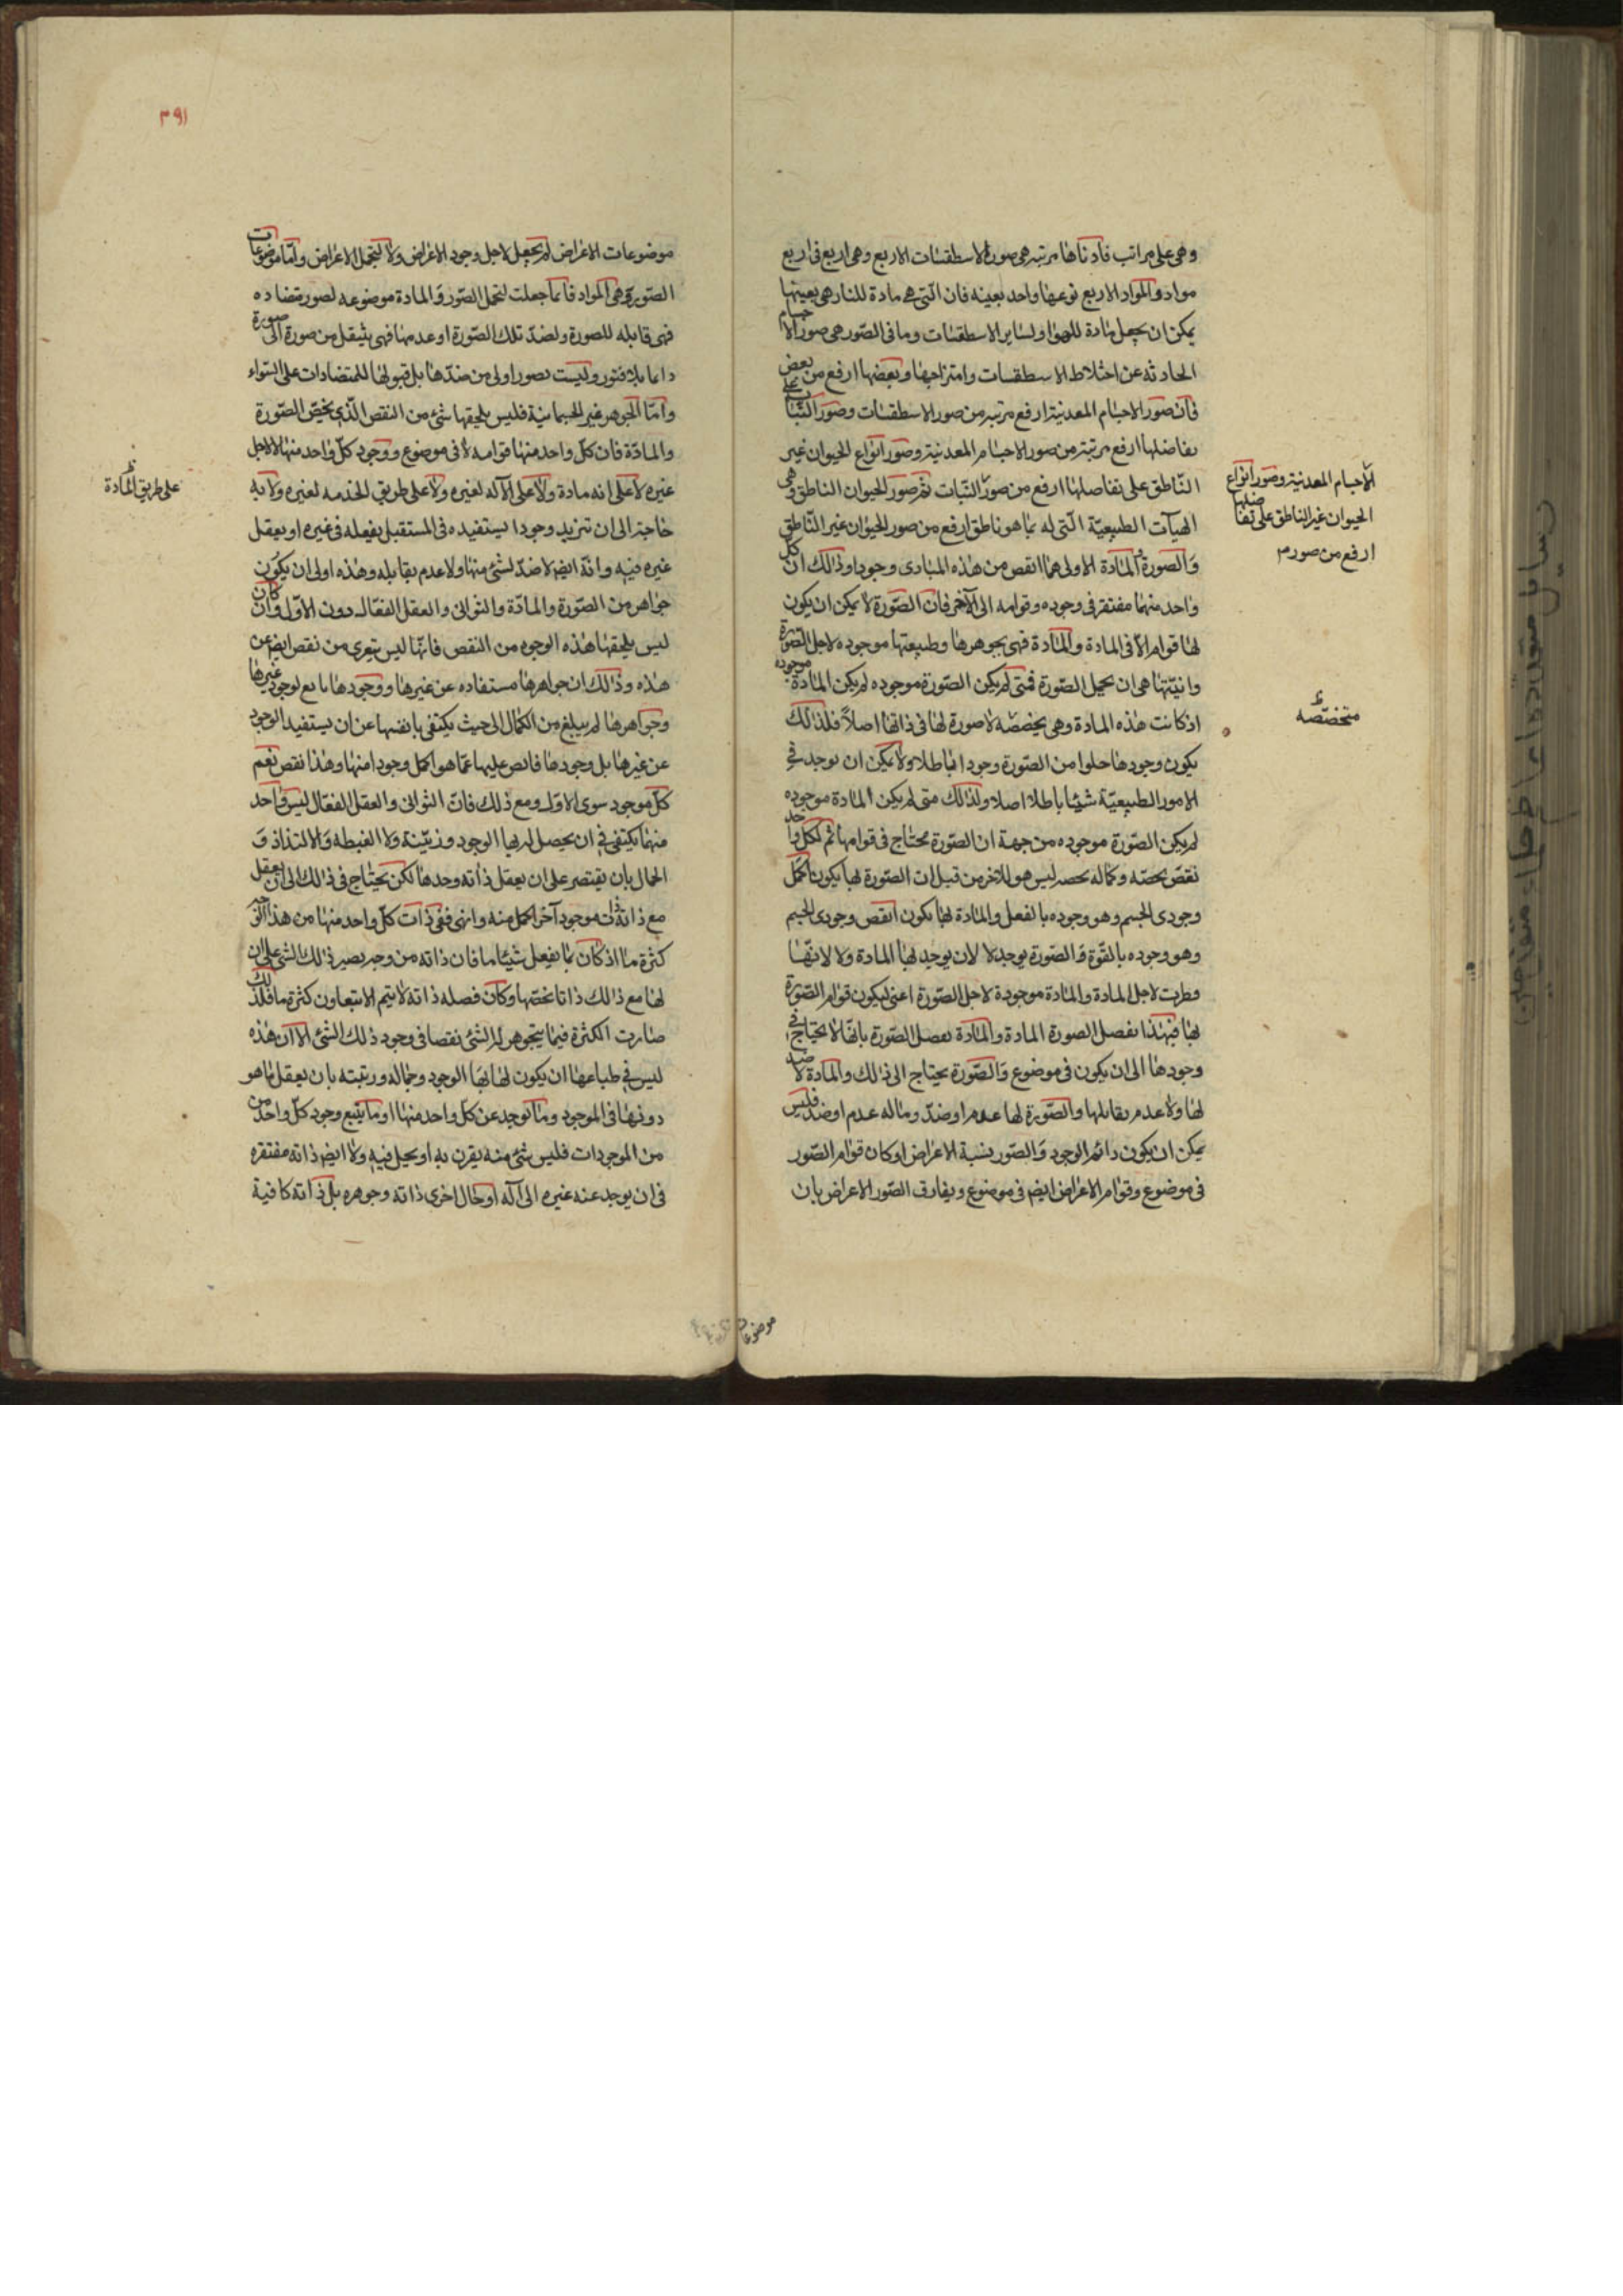 وهى على مراتب فادناها مرتبه هى صورة الاسطقسات الاربع وهى اربع فى اربع
مواد والمواد الاربع نوعها واحد بعينه فان التى هى مادة للنار هى بعينها
يمكن ان يجعل مادة للهوا ولساير الاسطقسات وما فى الصور هى صور الاجسام
الحادثه عن اختلاط الاسطقسات وامتزاجها وبعضها ارفع من بعض
فان صور الاجسام المعدنية ارفع مرتبه من صور الاسطقسات وصور النبات على
تفاضلها ارفع مرتبة من صور الاجسام المعدنية وصور انواع الحيوان غير
الناطق على تفاضلها ارفع من صور النبات ثم صور الحيوان الناطق وهى
الهيآت الطبيعية التى له بما هو ناطق ارفع من صور الحيوان غير الناطق
والصورة والمادة الاولى هما انقص من هذه المبادى وجودا وذلك ان كل
واحد منهما مفتقر فى وجوده وقوامه الى الآخر فان الصورة لا يمكن ان يكون
لها قوام الا فى المادة والمادة فهى بجوهرها وطبيعتها موجوده لاجل الصورة
وانيتها هى ان يحمل الصورة فمتى لم يكن الصورة موجوده لم يكن المادة موجوده
اذ كانت هذه المادة وهى يخصصه لا صورة لها فى ذاتها اصلاً فلذلك
يكون وجودها خلوا من الصورة وجودا باطلا ولا يمكن ان يوجد فى
الامور الطبيعية شيئا باطلا اصلا ولذلك متى لم يكن المادة موجوده
لم يكن الصورة موجوده من جهة ان الصورة محتاج فى قوامها ثم لكل واحد
نقص يخصه وكماله يخصه ليس هو للآخر من قبل ان الصورة لها يكون اكمل
وجودى الجسم وهو وجوده بالفعل والمادة لها يكون انقص وجودى الجسم
وهو وجوده بالقوة والصورة يوجد لا لان يوجد لها المادة ولا لانها
فطرت لاجل المادة والمادة موجودة لاجل الصورة اعنى ليكون قوام الصورة
لها فبهذا تفصل الصورة المادة والمادة تفصل الصورة بانها لا يحتاج فى
وجودها الى ان يكون فى موضوع والصورة يحتاج الى ذلك والمادة لا ضد
لها ولا عدم يقابلها والصورة لها عدم او ضد وما له عدم او ضد فليس
يمكن ان يكون دائم الوجود والصور بنسبة الاعراض او كان قوام الصور
فى موضوع وقوام الاعراض ايض فى موضوع ويفارق الصور الاعراض بان
الاجسام المعدنية وصور انواع
الحيوان غير الناطق على تفاضلها
ارفع من صور م
متخصصه
موضوعات
٣٩١
موضوعات الاعراض لم يجعل لاجل وجود الاعراض ولا لتحمل الاعراض واما موضوعات
الصورة وهى المواد فانما جعلت لتحمل الصور والمادة موضوعه لصور متضاده
فهى قابله للصورة ولضد تلك الصورة او عدمها فهى ينتقل من صورة الى صورة
دائما بلا فتور وليست بصور اولى من ضدها بل قبولها للمتضادات على السواء
واما الجوهر غير الجسمانية فليس يلحقها شئ من النقص الذى يخص الصورة
والمادة فان كل واحد منها قوامه لا فى موضوع ووجود كل واحد منها لا لاجل
غيره لا على انه مادة ولا على الآله لغيره ولا على طريق الخدمه لغيره ولا به
حاجة الى ان تزيد وجودا يستفيده فى المستقبل بفعله فى غيره او يعقل
غيره فيه وانه ايض لا ضد لشئ منها ولا عدم يقابله وهذه اولى ان يكون
جواهر من الصورة والمادة والثوانى والعقل الفعال دون الاول وان كان
ليس يلحقها هذه الوجوه من النقص فانها ليس يتعرى من نقص ايض عن
هذه وذلك ان جواهرها مستفاده عن غيرها ووجودها تابع لوجود غيرها
وجواهرها لم يبلغ من الكمال الى حيث يكتفى بانفسها عن ان يستفيد الوجود
عن غيرها بل وجودها فائض عليها عما هو اكمل وجودا منها وهذا نقص نعم
كل موجود سوى الاول ومع ذلك فان الثوانى والعقل الفعال ليس واحد
منهما يكتفى فى ان يحصل له بها الوجود وزينة ولا الغبطه والالتذاذ و
الجمال بان يقتصر على ان يعقل ذاته وحدها لكن يحتاج فى ذلك الى ان يعقل
مع ذاته ذات موجود آخر اكمل منه وابهى ففى ذات كل واحد منها من هذا الوجه
كثرة ما اذ كان ما يفعل شيئا ما فان ذاته من وجه يصير ذلك الشئ على ان
لها مع ذلك ذاتا تخصها وكان فصله ذاته لا يتم الا بتعاون كثرة ما فلذلك
صارت الكثرة فيما يتجوهر به الشئ نقصا فى وجود ذلك الشئ الا ان هذه
ليس فى طباعها ان يكون لها بها الوجود وجماله وزينته بان يعقل ما هو
دونها فى الموجود وما يوجد عن كل واحد منها او ما يتبع وجود كل واحد من
من الموجودات فليس شئ منه يقرن به او يحل فيه ولا ايض ذاته مفتقره
فى ان يوجد عنه غيره الى آله او حال اخرى ذاته وجوهره بل ذاته كافية
على طريق المادة